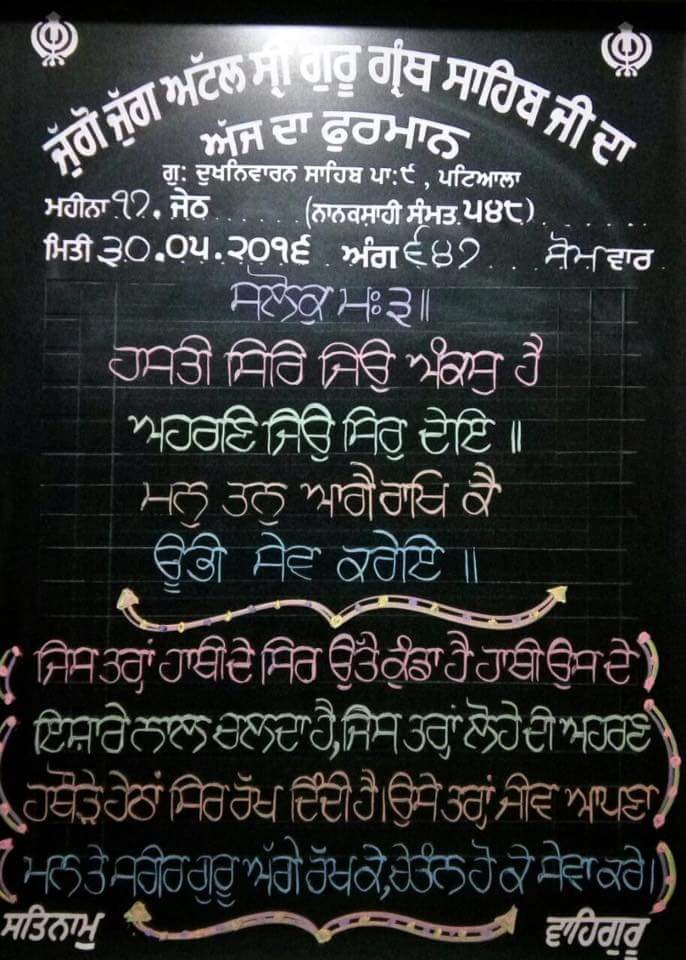 ਜੁੱਗੋ ਜੁੱਗ ਅਟੱਲ ਸ੍ਰੀ ਗੁਰੂ ਗ੍ਰੰਥ ਸਾਹਿਬ ਜੀ ਦਾ
ਅੱਜ ਦਾ ਫੁਰਮਾਨ
ਗੁ: ਦੁਖਨਿਵਾਰਨ ਸਾਹਿਬ ਪਾ:੯, ਪਟਿਆਲਾ
ਮਹੀਨਾ ੧੭. ਜੇਠ ...... (ਨਾਨਕਸਾਹੀ ਸੰਮਤ.੫੪੮)......
ਮਿਤੀ ੩੦.੦੫.੨੦੧੬ . ਅੰਗ ੬੪੭ ... ਸੋਮ ਵਾਰ
ਸਲੋਕੁ ਮਃ ੩॥
ਹਸਤੀ ਸਿਰਿ ਜਿਉ ਅੰਕਸੁ ਹੈ
ਅਹਰਣਿ ਜਿਉ ਸਿਰੁ ਦੇਇ ॥
ਮਨੁ ਤਨੁ ਆਗੈ ਰਾਖਿ ਕੈ
ਊਭੀ ਸੇਵ ਕਰੇਇ ॥
(ਜਿਸ ਤਰ੍ਹਾਂ ਹਾਥੀ ਦੇ ਸਿਰ ਉੱਤੇ ਕੁੰਡਾ ਹੈ ਹਾਥੀ ਉਸ ਦੇ)
(ਇਸ਼ਾਰੇ ਨਾਲ ਚਲਦਾ ਹੈ,ਜਿਸ ਤਰ੍ਹਾਂ ਲੋਹੇ ਦੀ ਅਹਰਣ)
(ਹਥੌੜੇ ਹੇਠਾਂ ਸਿਰ ਰੱਖ ਦਿੰਦੀ ਹੈ।ਉਸੇ ਤਰ੍ਹਾਂ ਜੀਵ ਆਪਣਾ)
(ਮਨ ਤੇ ਸਰੀਰ ਗੁਰੂ ਅੱਗੇ ਰੱਖ ਕੇ,ਚੇਤੰਨ ਹੋ ਕੇ ਸੇਵਾ ਕਰੇ।)
ਸਤਿਨਾਮੁ ਵਾਹਿਗੁਰੂ